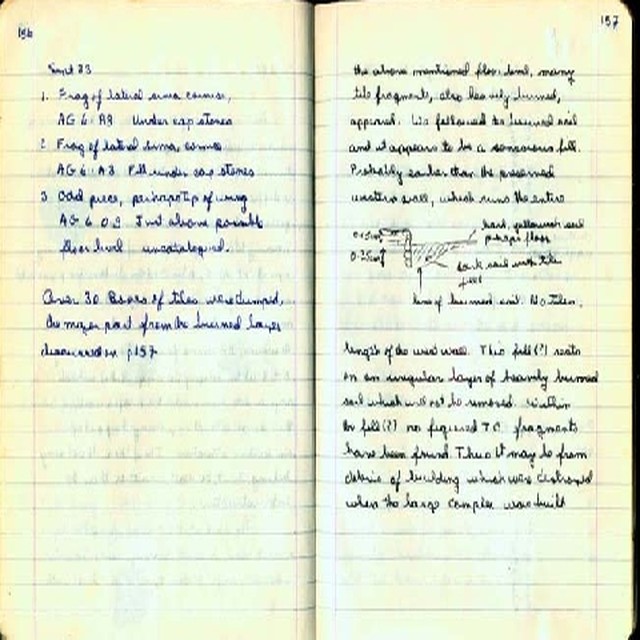 156
Sept 23
1. Frag of lateral sima cornice,
AG 6 A8 Under cap stones
2. Frag of lateral sima, cornice
AG 6 A8 Fill under cap stones
3. Odd piece, perhaps tip of wing
AG 6 Just above possible
floor level uncatalogued.
Over 30 Boxes of tiles were dumped,
the major part from the burned layer
discussed on p 157
157
the above mentioned floor level, many
tile fragments, also heavily burned,
appeared. We followed the burned soil
and it appears to be a fill.
Probably earlier than the preserved
western wall, which runs the entire
hard, yellowish soil
perhaps floor
dark soil with tiles
fill
line of burned soil. No tiles.
length of the west wall. This fill(?) rests
on an irregular layer of heavily burned
soil which will not be removed. Within
the fill(?) no figured TC fragments
have been found. Thus it may be from
debris of building which was destroyed
when the large complex was built